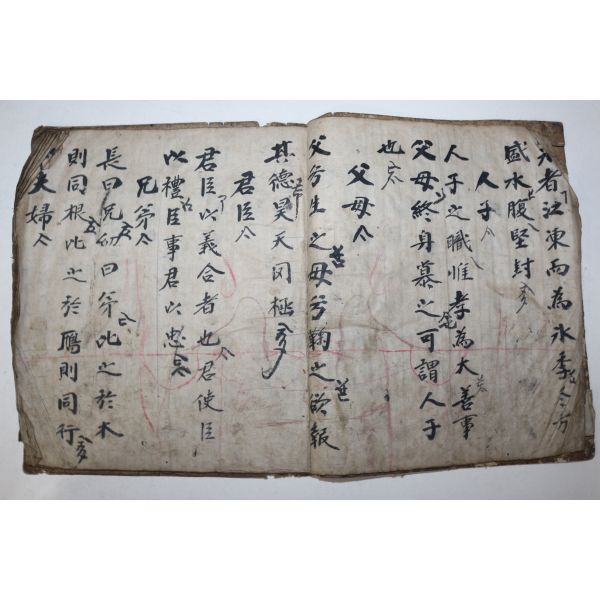 者江東而為水季冬方
盛水腹堅封
人子
人子之職惟孝為大善事
父母終身慕之可謂人子
也
父母
父兮生之母兮鞠之欲報
其德昊天罔極
君臣
君臣以義合者也君使臣
以禮臣事君以忠
兄弟
長曰兄幼曰弟比之於木
則同根比之於鴈則同行
夫婦